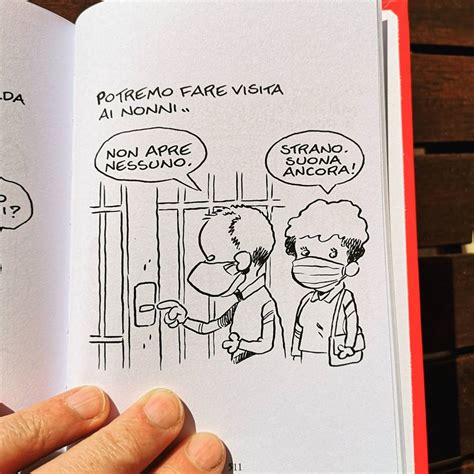 LDA
I?
POTREMO FARE VISITA
AI NONNI..
NON APRE
NESSUNO.
STRANO.
SUONA
ANCORA!
511